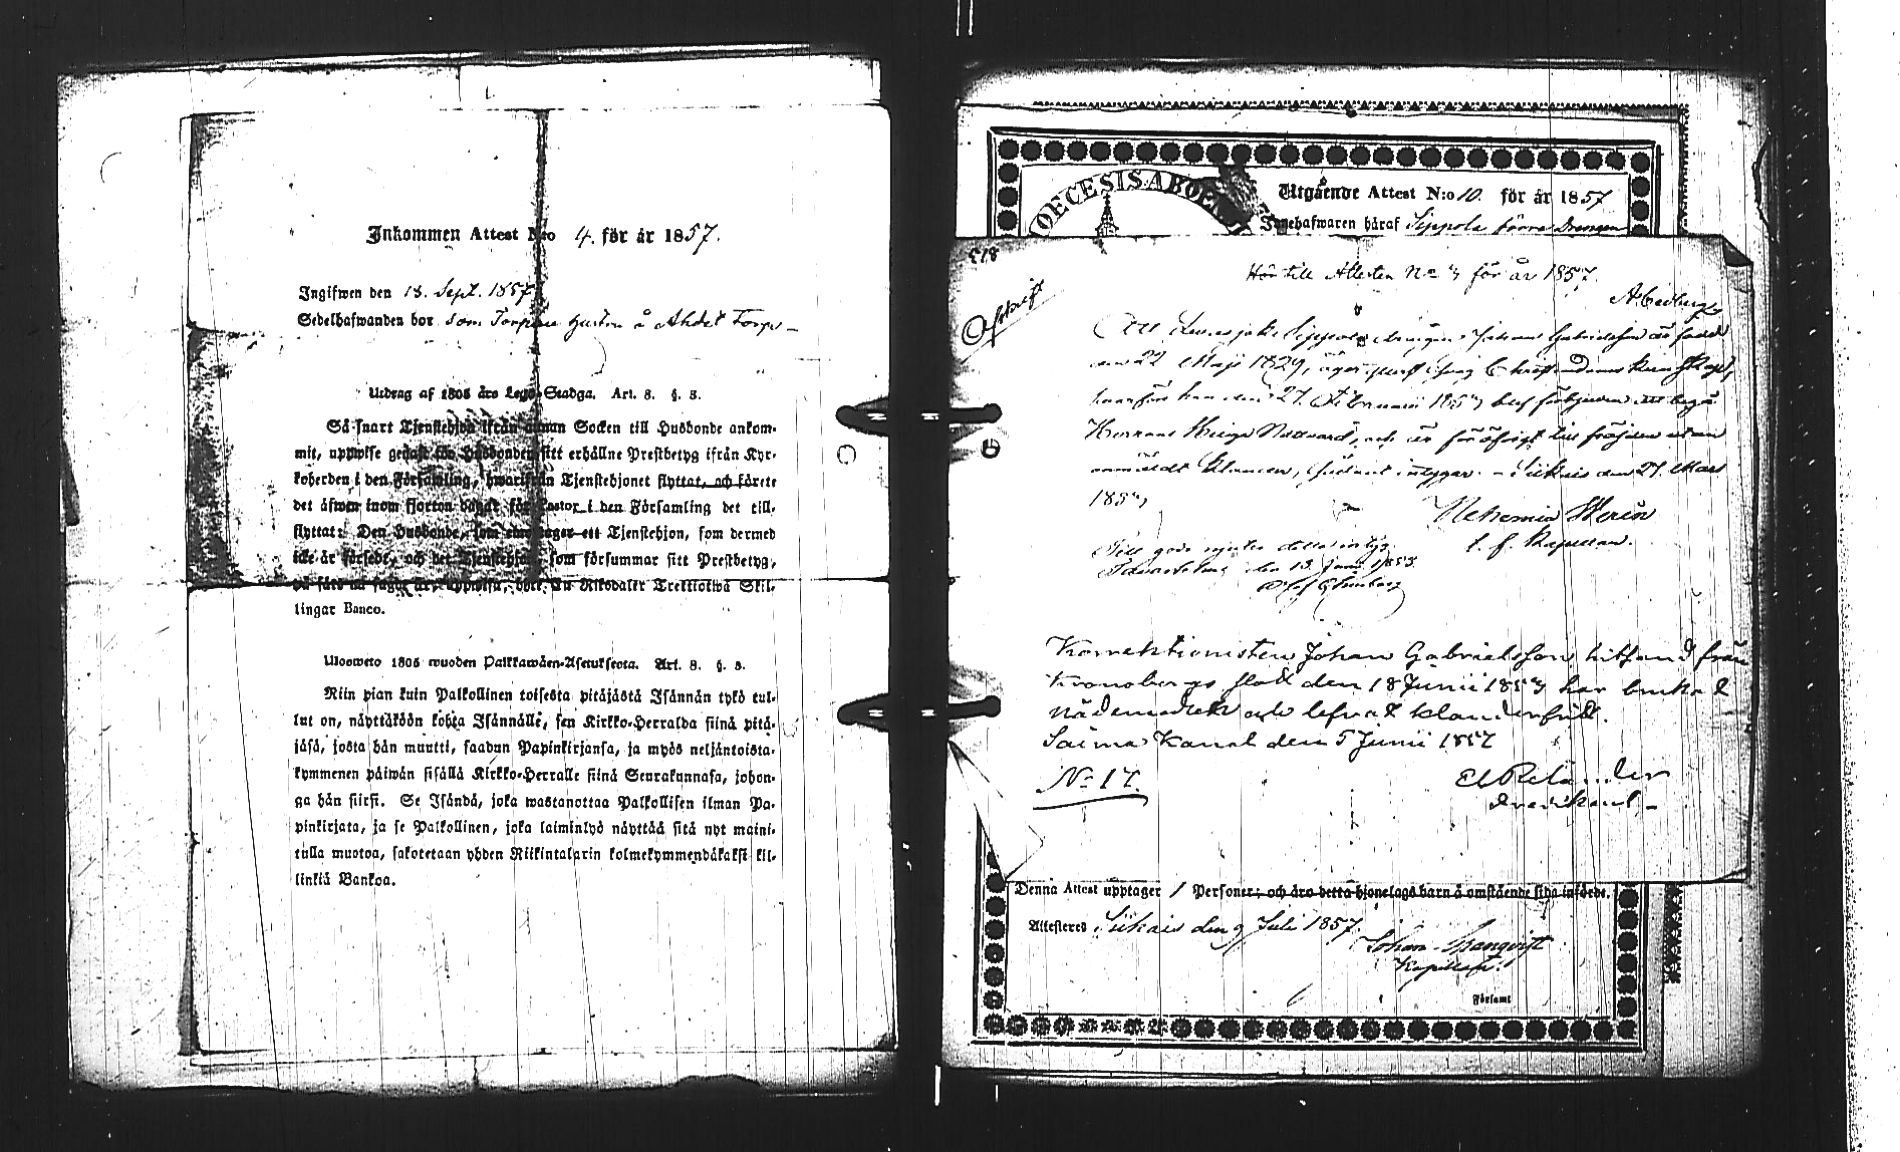 Inkommen Attest N:o 4. för år 1857.
Ingifwen den 18. Sept. 1857
Sedelhafwanden bor som Torpare å Torp
Utdrag af 1805 års Lego-Stadga. Art. 8. §. 3.
Så snart Tjenstehjon ifrån annan Socken till Husbonde ankom-
mit, uppwise genast för Husbonden sitt erhållne Prestbetyg ifrån Kyr-
koherden i den Församling, hwarifrån Tjenstehjonet flyttat, och förete
det äfwen inom fjorton dagar för Pastor i den Församling det till-
flyttat: Den Husbonde, som emottager ett Tjenstehjon, som dermed
icke är försedt, och det Tjenstehjon, som försummar sitt Prestbetyg,
på sätt nu sagdt är, uppwisa, böte En Riksdaler Trettiotwå Skil-
lingar Banco.
Ulosweto 1805 wuoden Palkkawäen-Asetuksesta. Art. 8. §. 3.
Niin pian kuin Palkollinen toisesta pitäjästä Isännän tykö tul-
lut on, näyttäköön kohta Isännälle, sen Kirkko-Herralda siinä pitä-
jäsä, josta hän muutti, saadun Papinkirjansa, ja myös neljäntoista-
kymmenen päiwän sisällä Kirkko-Herralle siinä Seurakunnasa, johon-
ga hän siirsi. Se Isändä, joka wastanottaa Palkollisen ilman Pa-
pinkirjata, ja se Palkollinen, joka laiminlyö näyttää sitä nyt maini-
tulla muotoa, sakotetaan yhden Riikintalarin kolmekymmendäkaksi kil-
linkiä Bankoa.
OECESIS ABOEN
Utgående Attest N:o 10. för år 1857
Innehafwaren häraf Sippola förre Drengen
813
Afskrift
Hör till Attesten No 4 för år 1857.
A Cedberg
Att Sippola drängen Johan Gabrielsson är född
den 22 Maji 1829, äger Christendoms kunskap,
hwarför han den 27. Februarii blef förbjuden att begå
Herrans Heliga Nattward, och är för öfrigt till fräjden utan
anmäldt klander, intygar. - Siikais den 27. Mars
185
Nehemia
t. f. Kapellan.
Till godo njuta detta intyg
den 13. Juni 1853.
Korrektionisten Johan Gabrielsson hitsänd från
Kronobergs slott den 18 Junii 1853 har brukat
nådemedel och lefvat klanderfritt.
Saima Kanal den 5 Junii 1857
No 17.
E Relander
Predikant
Denna Attest upptager 1 Personer; och äro detta hjonelags barn å omstående sida införde.
Attesteras Siikais den 9 Juli 1857.
Johan Granqvist
Kapellan
Församl